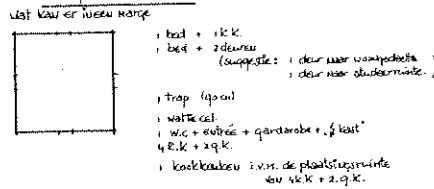 wat kan er in een marge
, bed + 1 k.k.
, bed + 2 deuren
(suggestie: 1 deur naar woongedeelte
1 deur naar studeerruimte.
, trap (90cm)
, natte cel.
, w.c + entrée + garderobe + kast
4 k.k + 2 g.k.
, kookkeuken i.v.m. de plaatsingsruimte
van 4k.k + 2.g.k.